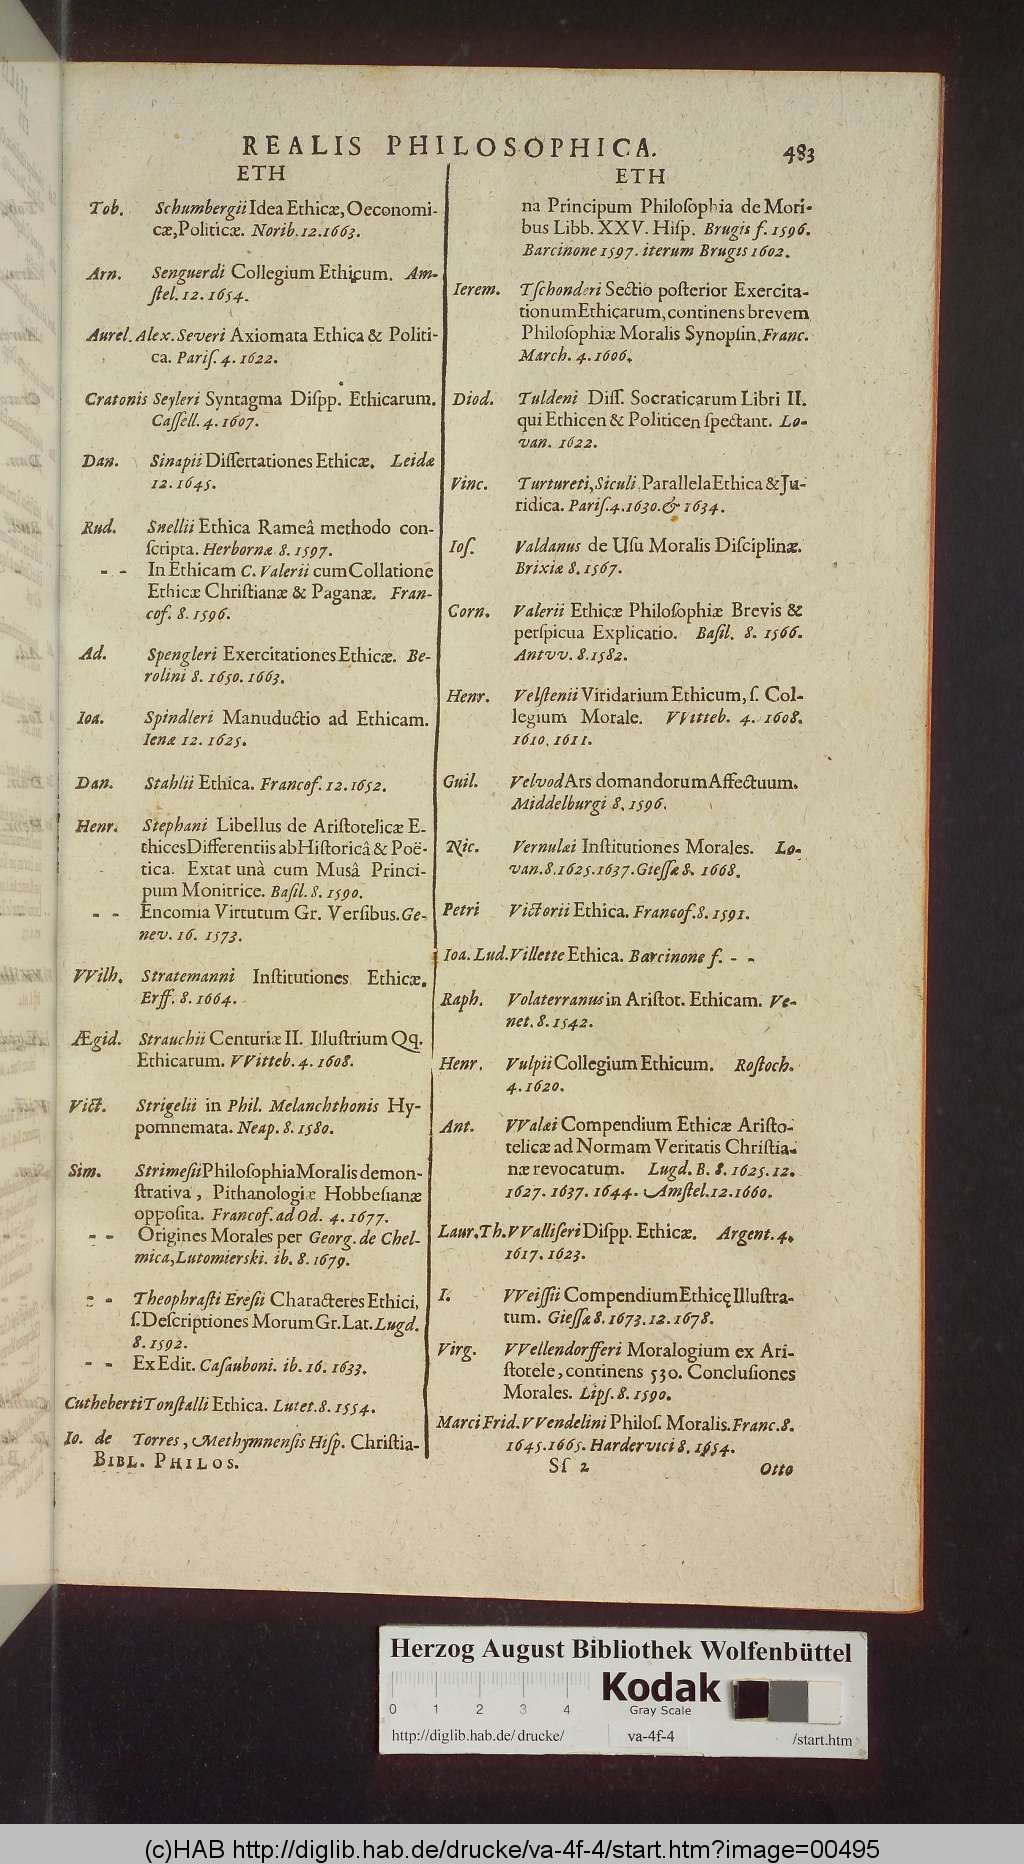 REALIS PHILOSOPHICA. 483
ETH
Tob. Schumbergii Idea Ethicæ, Oeconomi-
cæ, Politicæ. Norib. 12. 1663.
Arn. Senguerdi Collegium Ethicum. Am-
ſtel. 12. 1654.
Aurel. Alex. Severi Axiomata Ethica & Politi-
ca. Pariſ. 4. 1622.
Cratonis Seyleri Syntagma Diſpp. Ethicarum.
Caſſell. 4. 1607.
Dan. Sinapii Diſſertationes Ethicæ. Leidæ
12. 1645.
Rud. Snellii Ethica Rameâ methodo con-
ſcripta. Herbornæ 8. 1597.
- - In Ethicam C. Valerii cum Collatione
Ethicæ Chriſtianæ & Paganæ. Fran-
cof. 8. 1596.
Ad. Spengleri Exercitationes Ethicæ. Be-
rolini 8. 1650. 1663.
Ioa. Spindleri Manuductio ad Ethicam.
Ienæ 12. 1625.
Dan. Stahlii Ethica. Francof. 12. 1652.
Henr. Stephani Libellus de Ariſtotelicæ E-
thices Differentiis ab Hiſtoricâ & Poë-
tica. Extat unà cum Musâ Princi-
pum Monitrice. Baſil. 8. 1590.
- - Encomia Virtutum Gr. Verſibus. Ge-
nev. 16. 1573.
VVilh. Stratemanni Inſtitutiones Ethicæ.
Erff. 8. 1664.
Ægid. Strauchii Centuriæ II. Illuſtrium Qq.
Ethicarum. VVitteb. 4. 1608.
Vict. Strigelii in Phil. Melanchthonis Hy-
pomnemata. Neap. 8. 1580.
Sim. Strimeſii Philoſophia Moralis demon-
ſtrativa, Pithanologiæ Hobbeſianæ
oppoſita. Francof. ad Od. 4. 1677.
- - Origines Morales per Georg. de Chel-
mica, Lutomierski. ib. 8. 1679.
- - Theophraſti Ereſii Characteres Ethici,
ſ. Deſcriptiones Morum Gr. Lat. Lugd.
8. 1592.
- - Ex Edit. Caſauboni. ib. 16. 1633.
Cutheberti Tonſtalli Ethica. Lutet. 8. 1554.
Io. de Torres, Methymnenſis Hiſp. Chriſtia-
BIBL. PHILOS.
ETH
na Principum Philoſophia de Mori-
bus Libb. XXV. Hiſp. Brugis f. 1596.
Barcinone 1597. iterum Brugis 1602.
Ierem. Tſchonderi Sectio poſterior Exercita-
tionum Ethicarum, continens brevem
Philoſophiæ Moralis Synopſin. Franc.
March. 4. 1606.
Diod. Tuldeni Diſſ. Socraticarum Libri II.
qui Ethicen & Politicen ſpectant. Lo-
van. 1622.
Vinc. Turtureti, Siculi, Parallela Ethica & Ju-
ridica. Pariſ. 4. 1630. & 1634.
Ioſ. Valdanus de Uſu Moralis Diſciplinæ.
Brixiæ 8. 1567.
Corn. Valerii Ethicæ Philoſophiæ Brevis &
perſpicua Explicatio. Baſil. 8. 1566.
Antvv. 8. 1582.
Henr. Velſtenii Viridarium Ethicum, ſ. Col-
legium Morale. VVitteb. 4. 1608.
1610. 1611.
Guil. Velvod Ars domandorum Affectuum.
Middelburgi 8. 1596.
Nic. Vernulæi Inſtitutiones Morales. Lo-
van. 8. 1625. 1637. Gieſſæ 8. 1668.
Petri Victorii Ethica. Francof. 8. 1591.
Ioa. Lud. Villette Ethica. Barcinone f. - -
Raph. Volaterranus in Ariſtot. Ethicam. Ve-
net. 8. 1542.
Henr. Vulpii Collegium Ethicum. Roſtoch.
4. 1620.
Ant. VValæi Compendium Ethicæ Ariſto-
telicæ ad Normam Veritatis Chriſtia-
næ revocatum. Lugd. B. 8. 1625. 12.
1627. 1637. 1644. Amſtel. 12. 1660.
Laur. Th. VValliſeri Diſpp. Ethicæ. Argent. 4.
1617. 1623.
I. VVeiſſii Compendium Ethicę Illuſtra-
tum. Gieſſæ 8. 1673. 12. 1678.
Virg. VVellendorfferi Moralogium ex Ari-
ſtotele, continens 530. Concluſiones
Morales. Lipſ. 8. 1590.
Marci Frid. VVendelini Philoſ. Moralis. Franc. 8.
1645. 1665. Hardervici 8. 1654.
Sſ 2 Otto
Herzog August Bibliothek Wolfenbüttel
0 1 2 3 4
Kodak
Gray Scale
http://diglib.hab.de/drucke/ va-4f-4 /start.htm
(c)HAB http://diglib.hab.de/drucke/va-4f-4/start.htm?image=00495